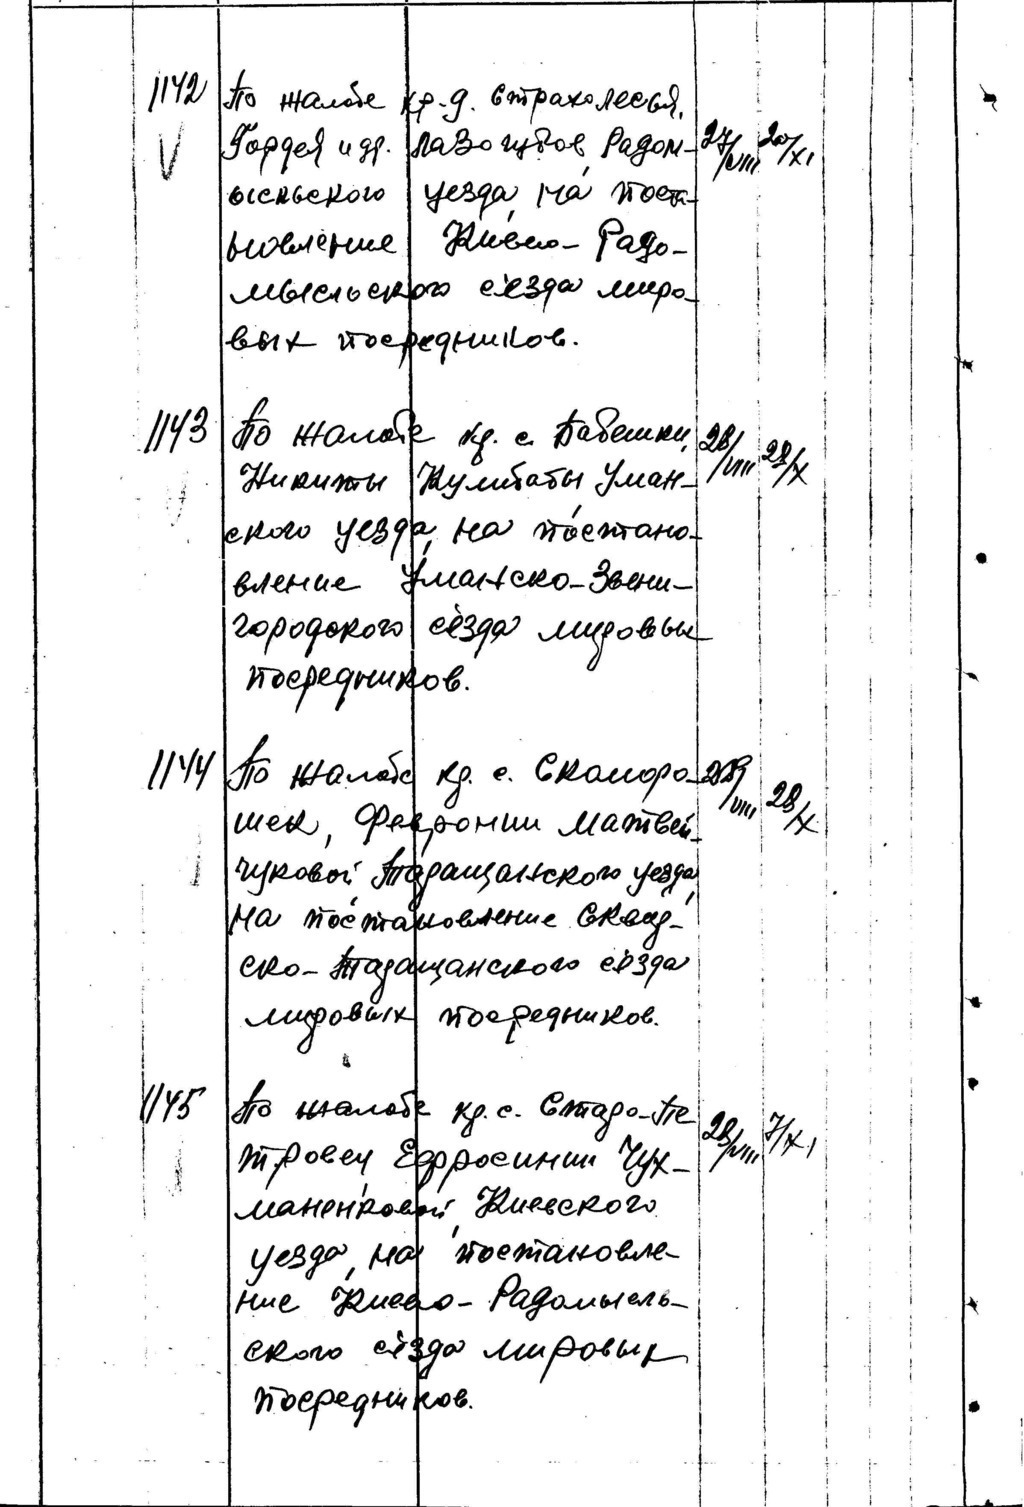 1142 По жалобе кр. д. Страхолесья,
Гордея и др. Лазогубов Радом- 27/VIII 20/XI
ысльского уезда, на поста-
новление Киево-Радо-
мысльского съезда миро-
вых посредников.
1143 По жалобе кр. с. Бабешки, 28/VIII 28/X
Никиты Кулибабы Уман-
ского уезда, на постано-
вление Уманско-Звени-
городского съезда мировых
посредников.
1144 По жалобе кр. с. Скоморо- 28/VIII 28/X
шек, Февронии Матвей-
чуковой Таращанского уезда,
на постановление Сквир-
ско-Таращанского съезда
мировых посредников.
1145 По жалобе кр. с. Старо-Пе 28/VIII 7/XI
тровец Ефросинии Чух-
маненковой, Киевского
уезда, на постановле-
ние Киево-Радомысль-
ского съезда мировых
посредников.